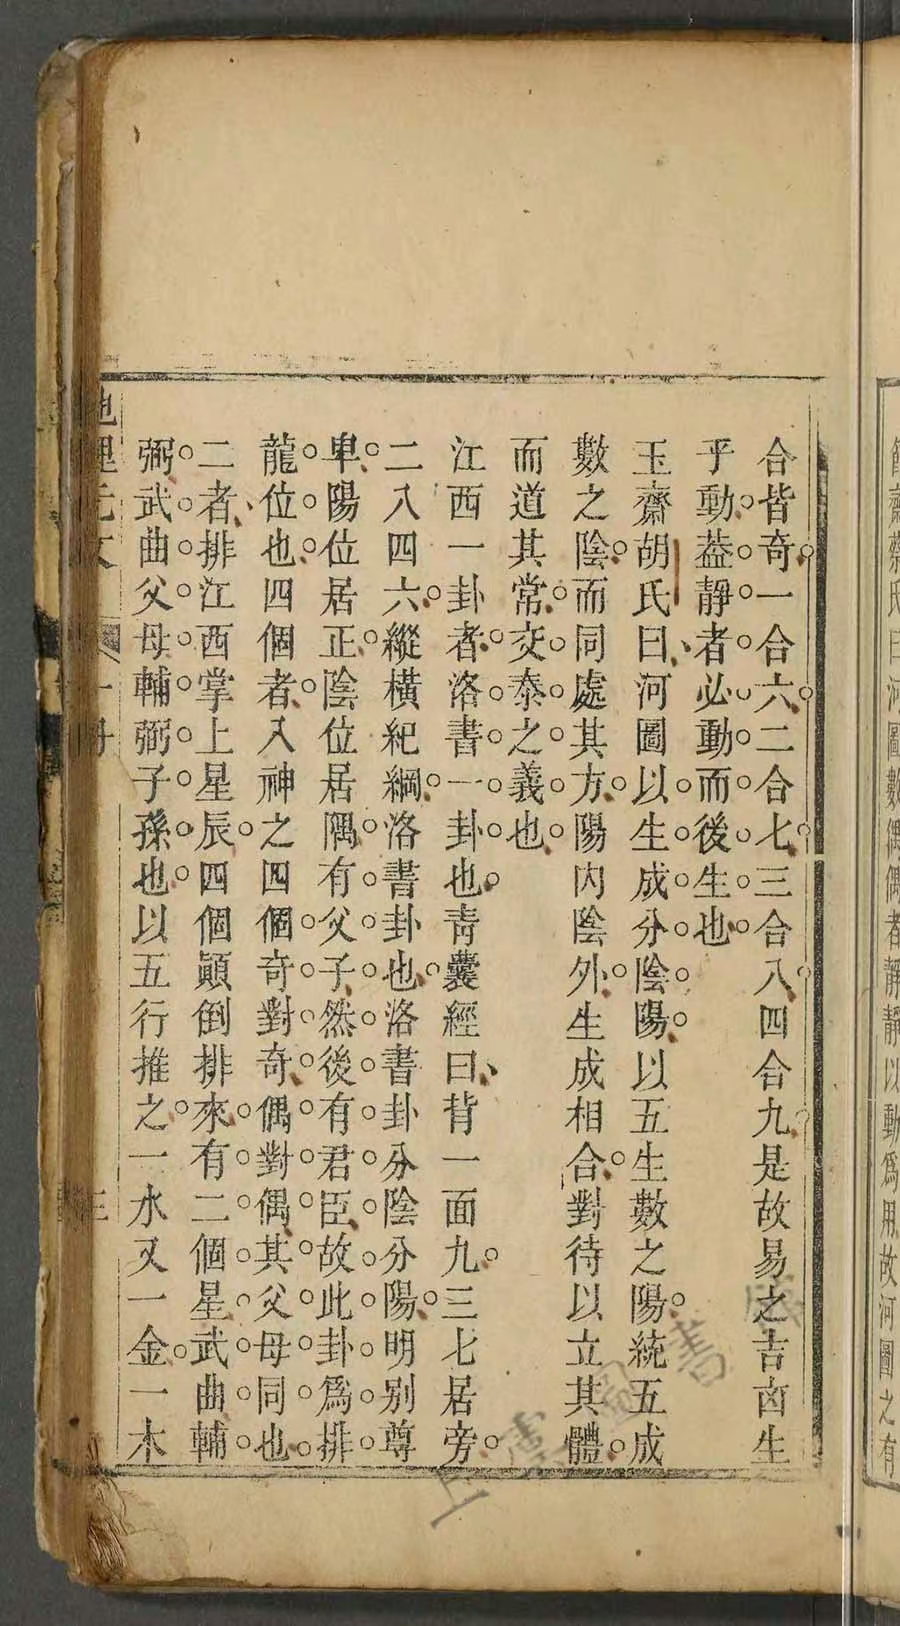 齋蔡氏曰河圖數偶偶者靜靜以動爲用故河圖之有
合皆奇一合六二合七三合八四合九是故易之吉凶生
乎動葢靜者必動而後生也
玉齋胡氏曰河圖以生成分陰陽以五生數之陽統五成
數之陰而同處其方陽內陰外生成相合對待以立其體
而道其常交泰之義也
江西一卦者洛書一卦也青囊經曰背一面九三七居旁
二八四六縱橫紀綱洛書卦也洛書卦分陰分陽明別尊
卑陽位居正陰位居隅有父子然後有君臣故此卦爲排
龍位也四個者八神之四個奇對奇偶對偶其父母同也
二者排江西掌上星辰四個顚倒排來有二個星武曲輔
弼武曲父母輔弼子孫也以五行推之一水又一金一木
地理元文
三
上虞圖書館